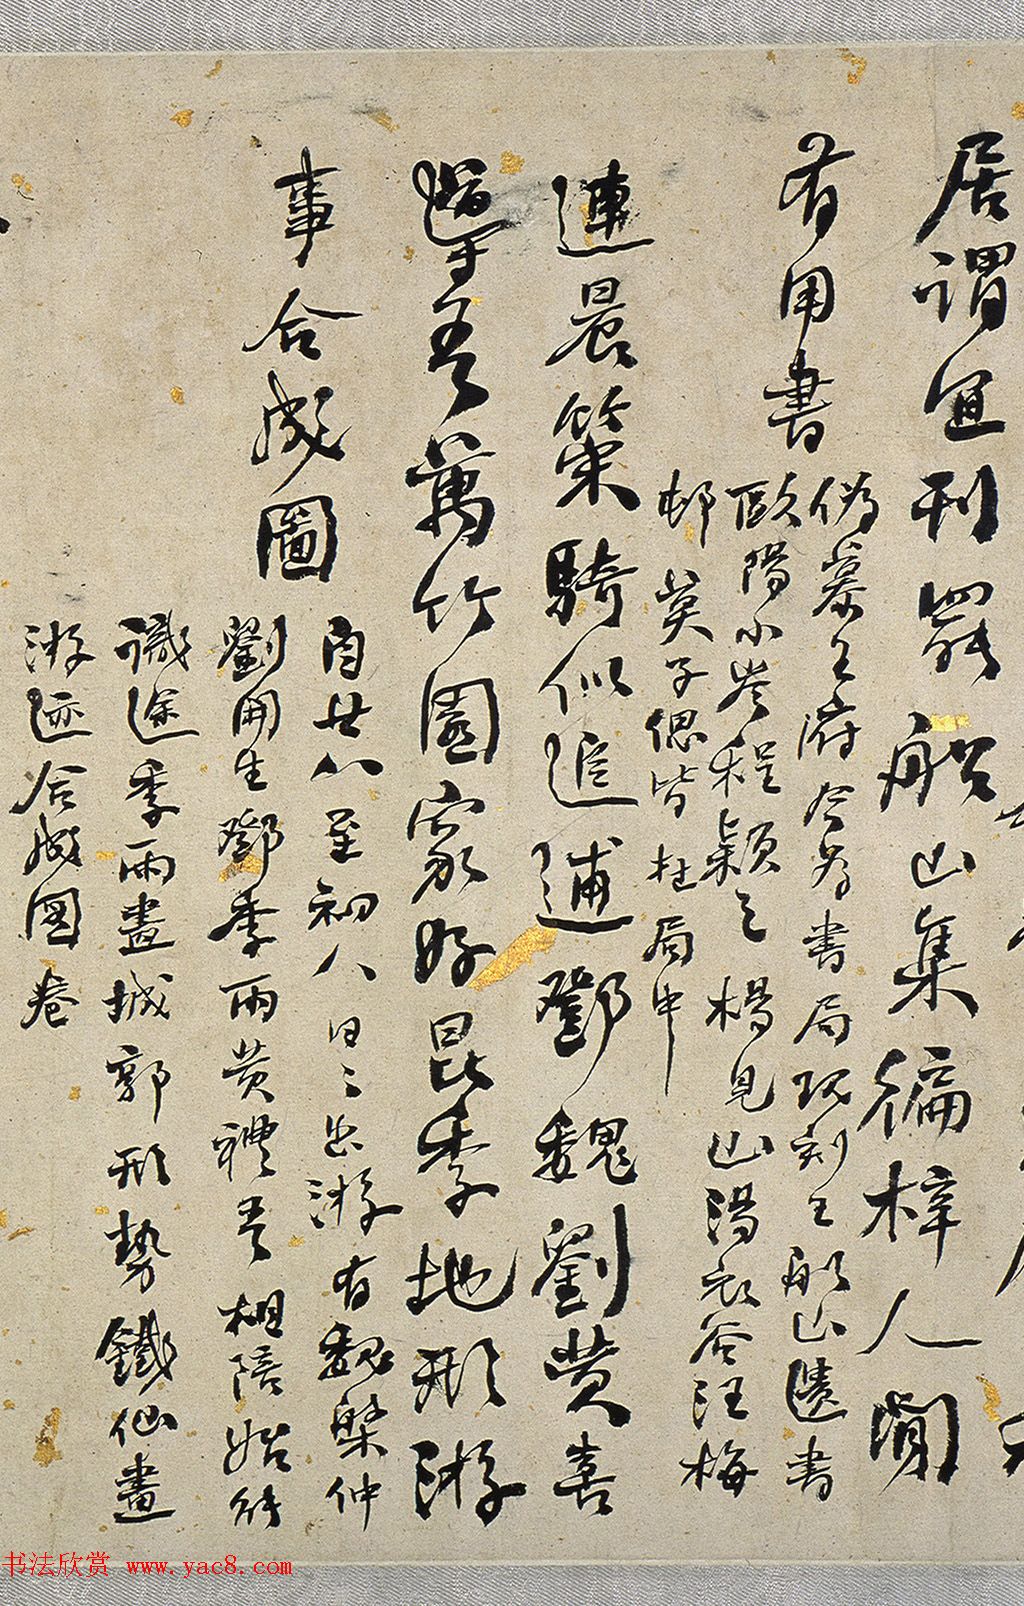 居謂宜刊罷船山集徧梓人間
有用書
偽慕王府今為書局現刻王船山遺書
歐陽小岑程穎之楊見山湯衣谷汪梅
邨莫子偲皆在局中
連晨策騎似追逋鄧魏劉黃喜
與吾萬竹園家好昆季地形游
事合成圖
自廿八至初八日〻出游有魏槃仲
劉開生鄧季雨黃禮吾相陪始能
識途季雨畫城郭形勢鐵仙畫
游迹合成圖卷
书法欣赏 www.yac8.com